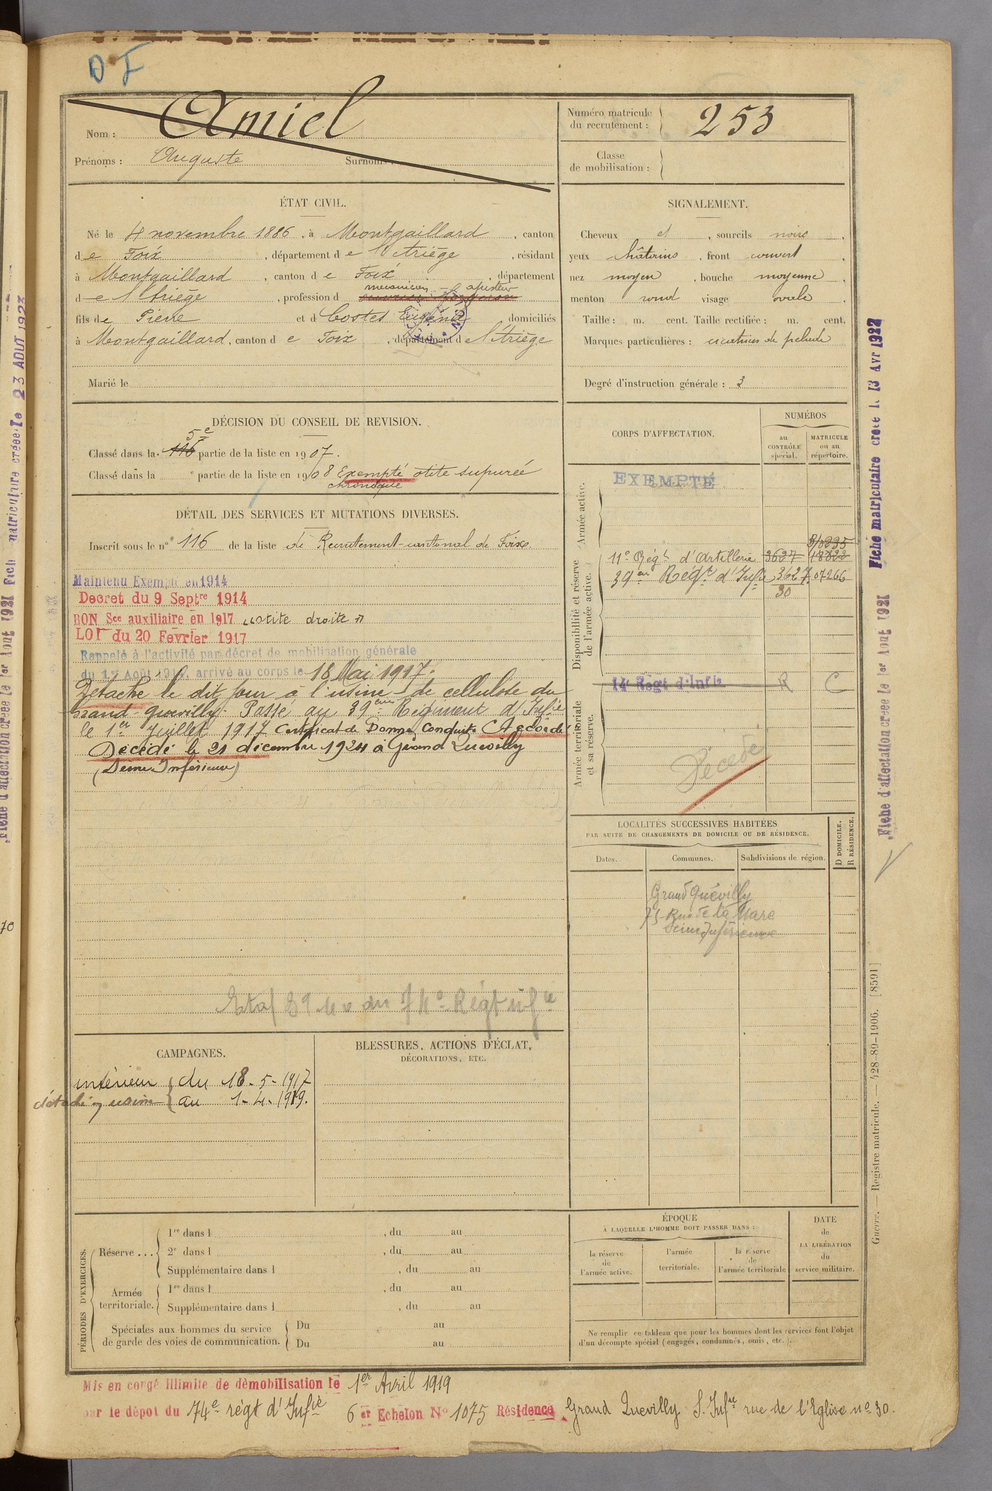 D F
Nom : Amiel
Prénoms : Auguste Surnoms :
Numéro matricule du recrutement : 253
Classe de mobilisation :
ÉTAT CIVIL.
Né le 4 novembre 1886, à Montgaillard, canton
de Foix, département de l'Ariège, résidant
à Montgaillard, canton de Foix, département
de l'Ariège, profession d mécanicien - ajusteur
fils de Pierre et d Costes Eugénie domiciliés
à Montgaillard, canton de Foix, département de l'Ariège
Marié le
SIGNALEMENT.
Cheveux et, sourcils noirs,
yeux châtains, front couvert,
nez moyen, bouche moyenne
menton rond visage ovale
Taille : m. cent. Taille rectifiée : m. cent.
Marques particulières : cicatrices de pelade
Degré d'instruction générale : 3
DÉCISION DU CONSEIL DE REVISION.
Classé dans la 116 5e partie de la liste en 1907.
Classé dans la e partie de la liste en 1908 Exempté otite supureé
chronique
DÉTAIL DES SERVICES ET MUTATIONS DIVERSES.
Inscrit sous le n° 116 de la liste de Recrutement cantonal de Foix.
Maintenu Exempté en 1914
Décret du 9 Septre 1914
BON Sce auxiliaire en 1917 "otite droite"
LOI du 20 Février 1917
Rappelé à l'activité par décret de mobilisation générale
du 1er Août 1914, arrivé au corps le 18 Mai 1917.
Détaché le dit jour à l'usine de cellulose du
Grand-Quevilly. Passé au 39eme Régiment d'Infie
le 1er Juillet 1917 Certificat de Bonne Conduite Accordé
Décédé le 21 décembre 1921 à Grand Quevilly
(Seine Inférieure)
du 74e Régt
CORPS D'AFFECTATION.
NUMÉROS
au CONTRÔLE spécial.
MATRICULE ou au répertoire.
Armée active.
EXEMPTÉ
Disponibilité et réserve de l'armée active.
11e Régt d'Artillerie 3627
39eme Régt d'Infie 3627 07266
30
14e Régt d'Infie R C
Armée territoriale et sa réserve.
Décédé
LOCALITÉS SUCCESSIVES HABITÉES
PAR SUITE DE CHANGEMENTS DE DOMICILE OU DE RÉSIDENCE.
Dates. Communes. Subdivisions de région. D DOMICILE. R RÉSIDENCE.
Grand Quévilly
75 Rue de la Mare
Seine Inférieure
CAMPAGNES.
intérieur du 18-5-1917
détaché usine au 1-4-1919.
BLESSURES, ACTIONS D'ÉCLAT,
DÉCORATIONS, ETC.
PÉRIODES D'EXERCICES.
Réserve ... 1re dans l , du au
2e dans l , du au
Supplémentaire dans l , du au
Armée territoriale. 1re dans l , du au
Supplémentaire dans l , du au
Spéciales aux hommes du service Du au
de garde des voies de communication. Du au
ÉPOQUE
À LAQUELLE L'HOMME DOIT PASSER DANS :
la réserve de l'armée active.
l'armée territoriale.
la réserve de l'armée territoriale
DATE de LA LIBÉRATION du service militaire.
Ne remplir ce tableau que pour les hommes dont les services font l'objet
d'un décompte spécial (engagés, condamnés, omis, etc.).
Mis en congé illimité de démobilisation le 1er Avril 1919
par le dépôt du 74e régt d'Infie 6er Echelon No 1075 Résidence Grand Quevilly S. Infre rue de l'Eglise no 30.
Fiche matriculaire créée le 13 Avr 1922
Fiche d'affectation créée le 1er Août 1921
Guerre. — Registre matricule. — 428-89-1906. [8591]
matriculaire créée le 23 AOUT 1922
Fiche d'affectation créée le 1er Août 1921
70